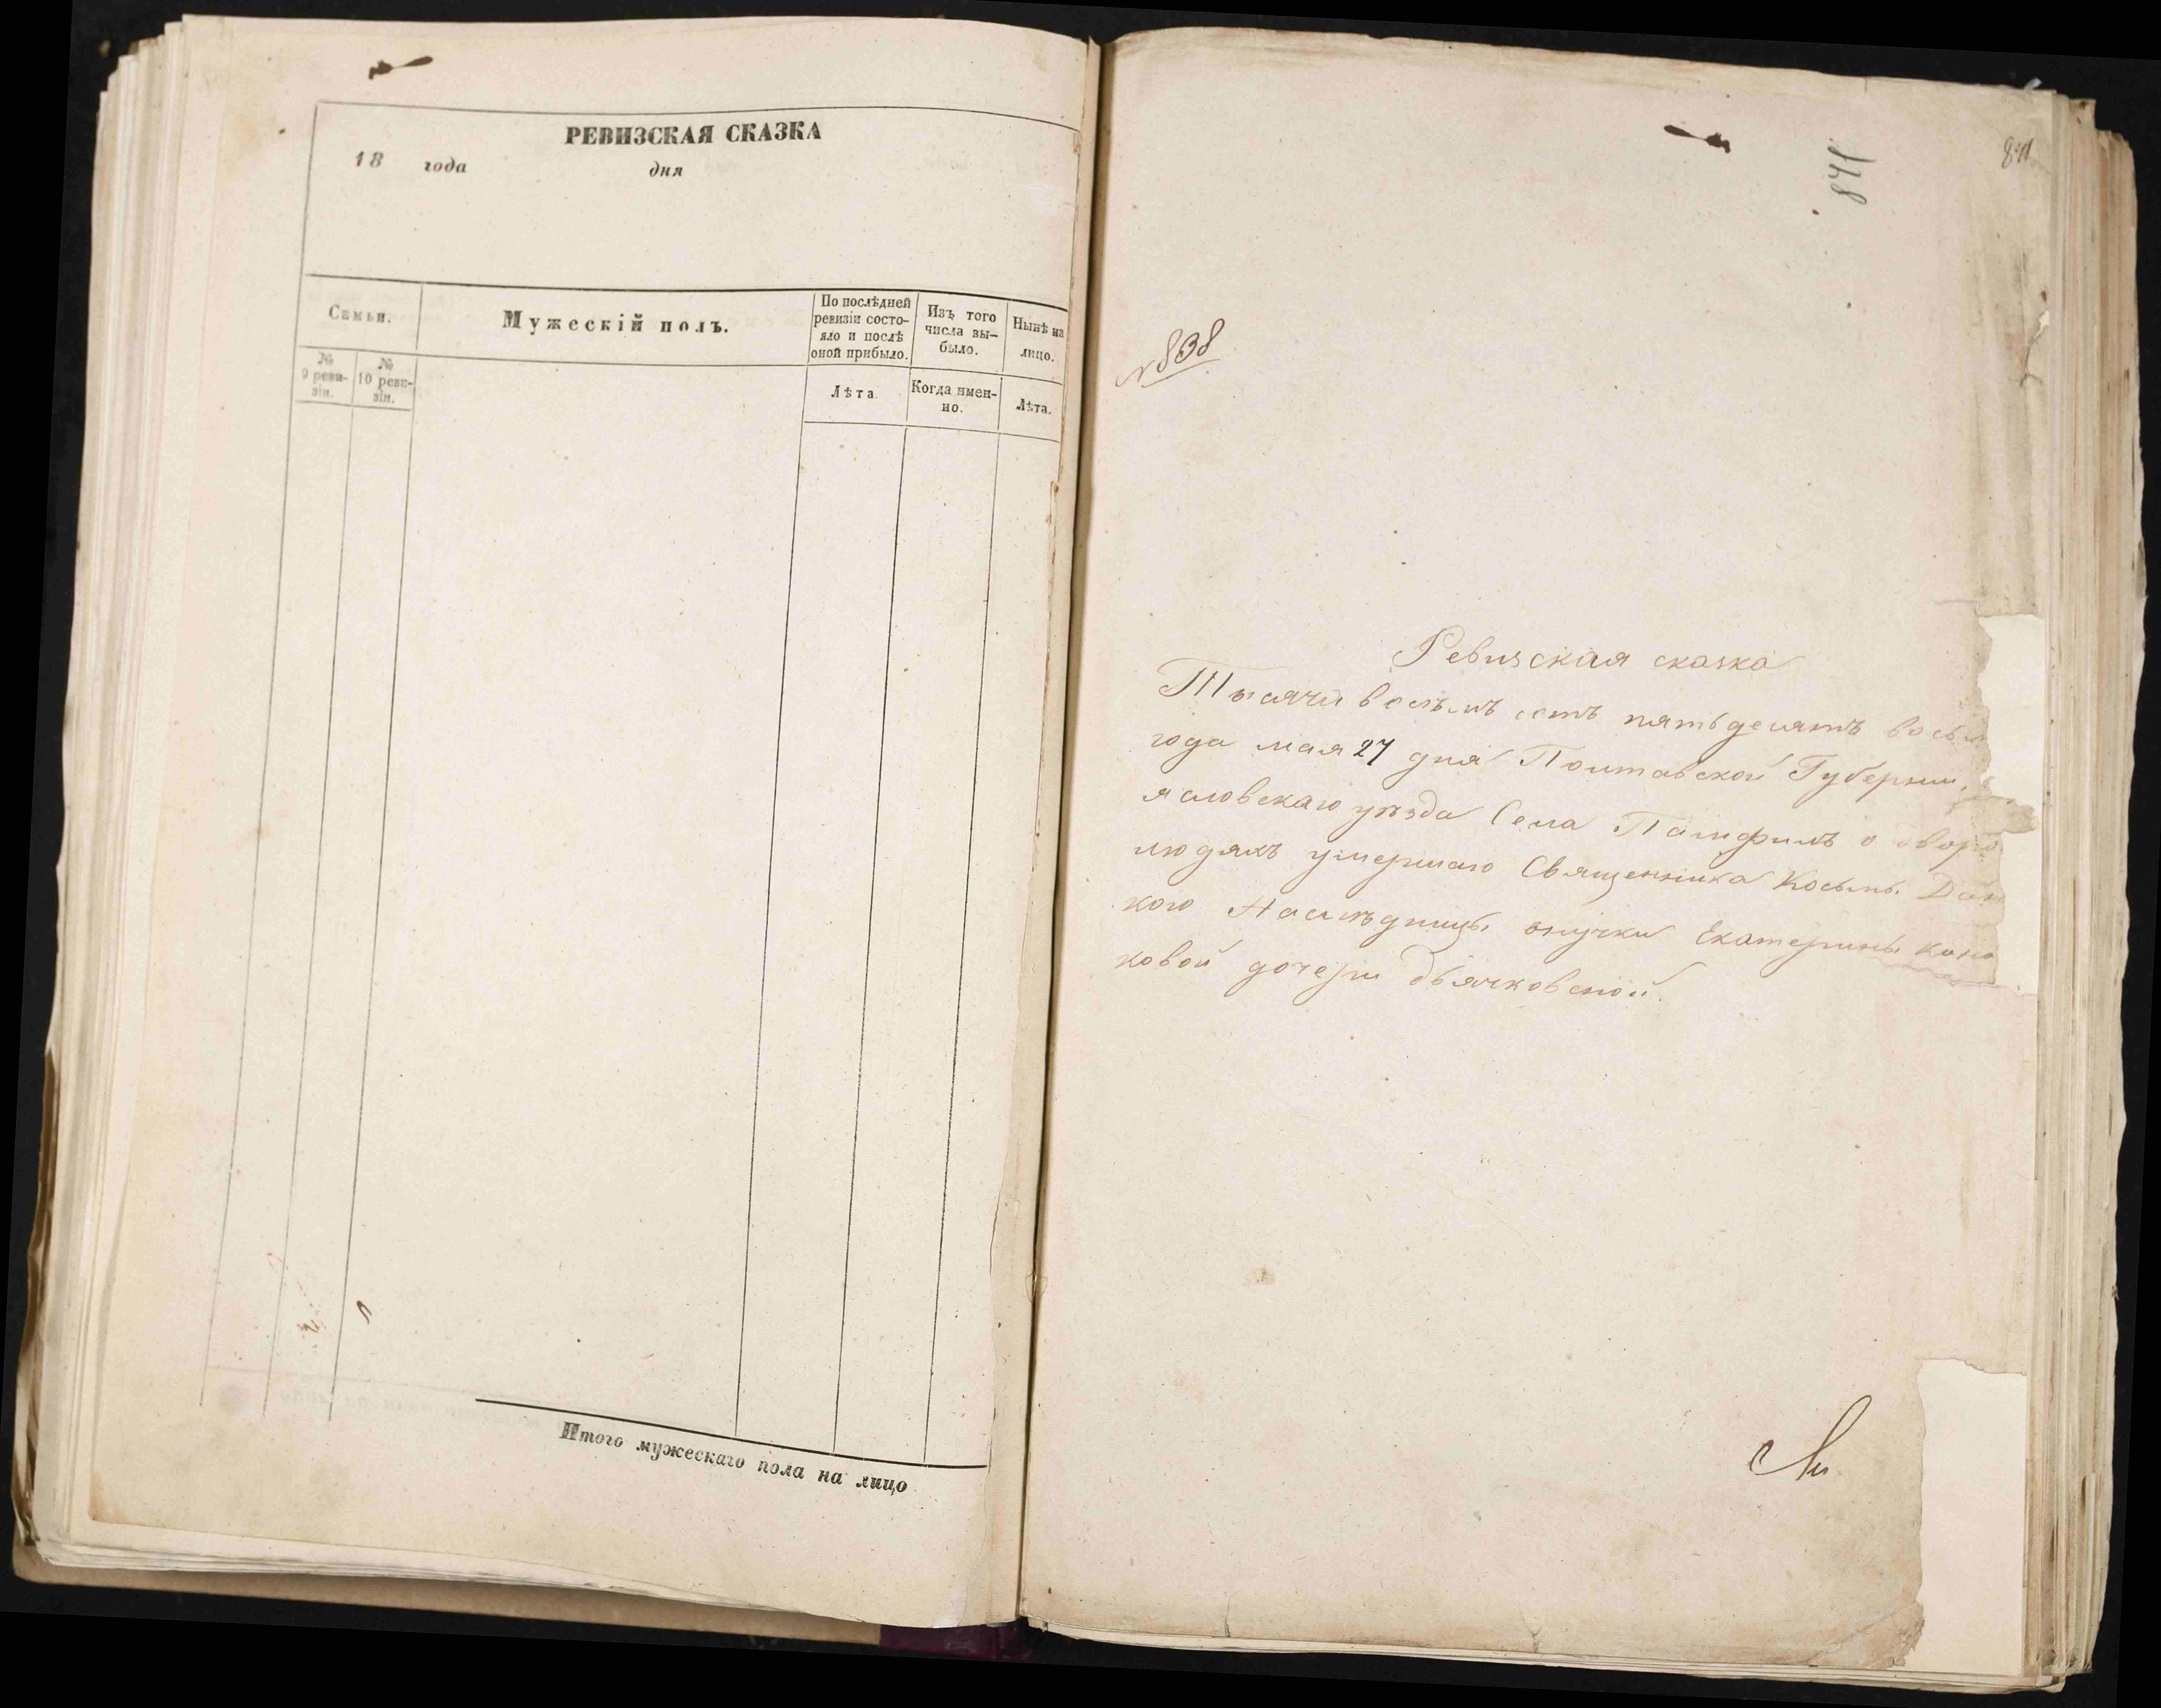 РЕВИЗСКАЯ СКАЗКА
18 года дня
Семьи.
Мужескій полъ.
По послѣдней ревизіи состо-
яло и послѣ
оной прибыло.
Изъ того
числа вы-
было.
Нынѣ на
лицо.
№
9 реви-
зіи.
№
10 реви-
зіи.
Лѣта.
Когда имен-
но.
Лѣта.
Итого мужескаго пола на лицо
841
148
№838
Ревизская сказка
Тысячи восъмъ сотъ пятьдесятъ восьм
года мая 27 дня Полтавской Губерніи,
яславскаго уѣзда Села Памфилъ о дворо
людяхъ умершаго Священника Косьмы Дан
кого Наслѣдницы внучки Екатерины
ковой дочери Дьячковской.